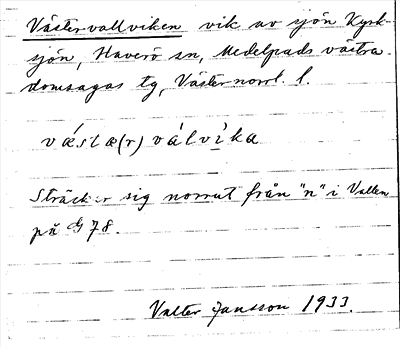 Västervallviken vik av sjön Kyrk-
sjön, Haverö sn, Medelpads västra
domsagas tg, Västernorrl. l.
vǽstæ(r) válvìka
Sträcker sig norrut från "n" i Vallen
på 78.
Valter Jansson 1933.